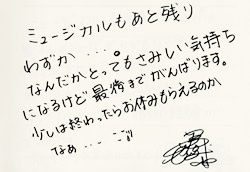 ミュージカルもあと残り
わずか・・・。
なんだかとってもさみしい気持ち
になるけど最後までがんばります。
少しは終わったらお休みもらえるのか
なぁ…